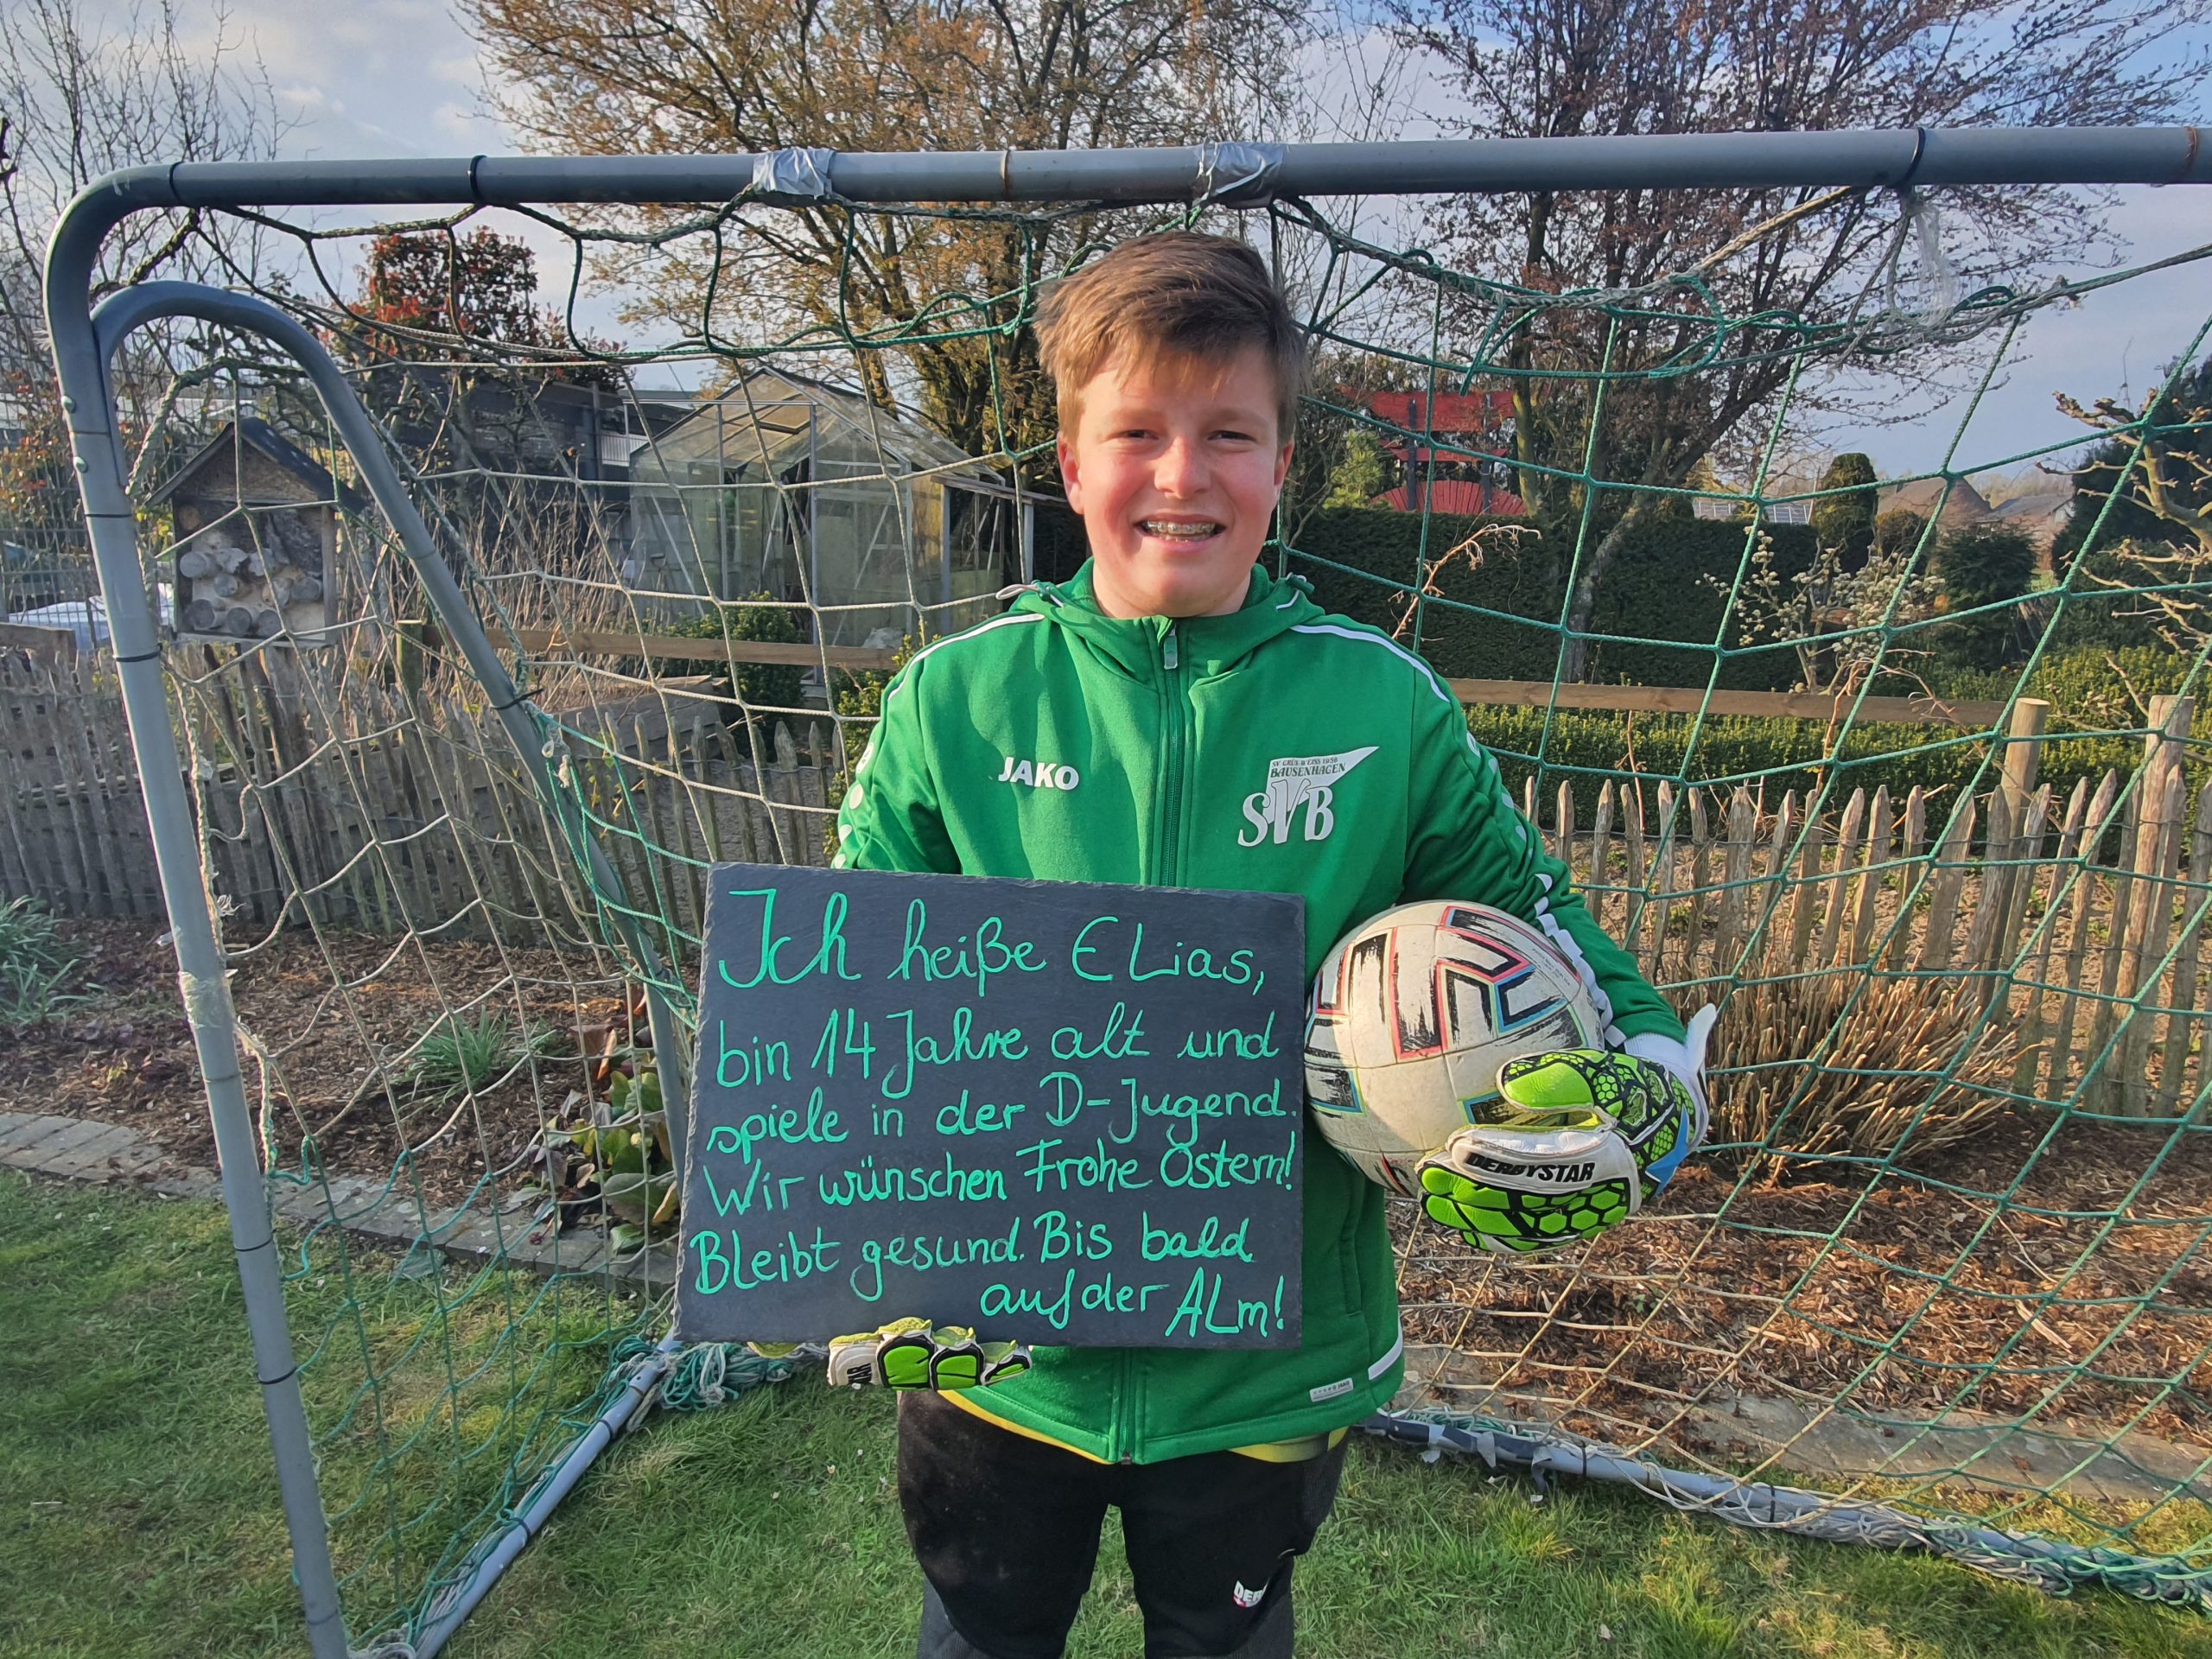 JAKO
SV GRÜN WEISS 1956
BAUSENHAGEN
SVB
Ich heiße Elias,
bin 14 Jahre alt und
spiele in der D-Jugend.
Wir wünschen Frohe Ostern!
Bleibt gesund. Bis bald
auf der ALm!
DERBYSTAR